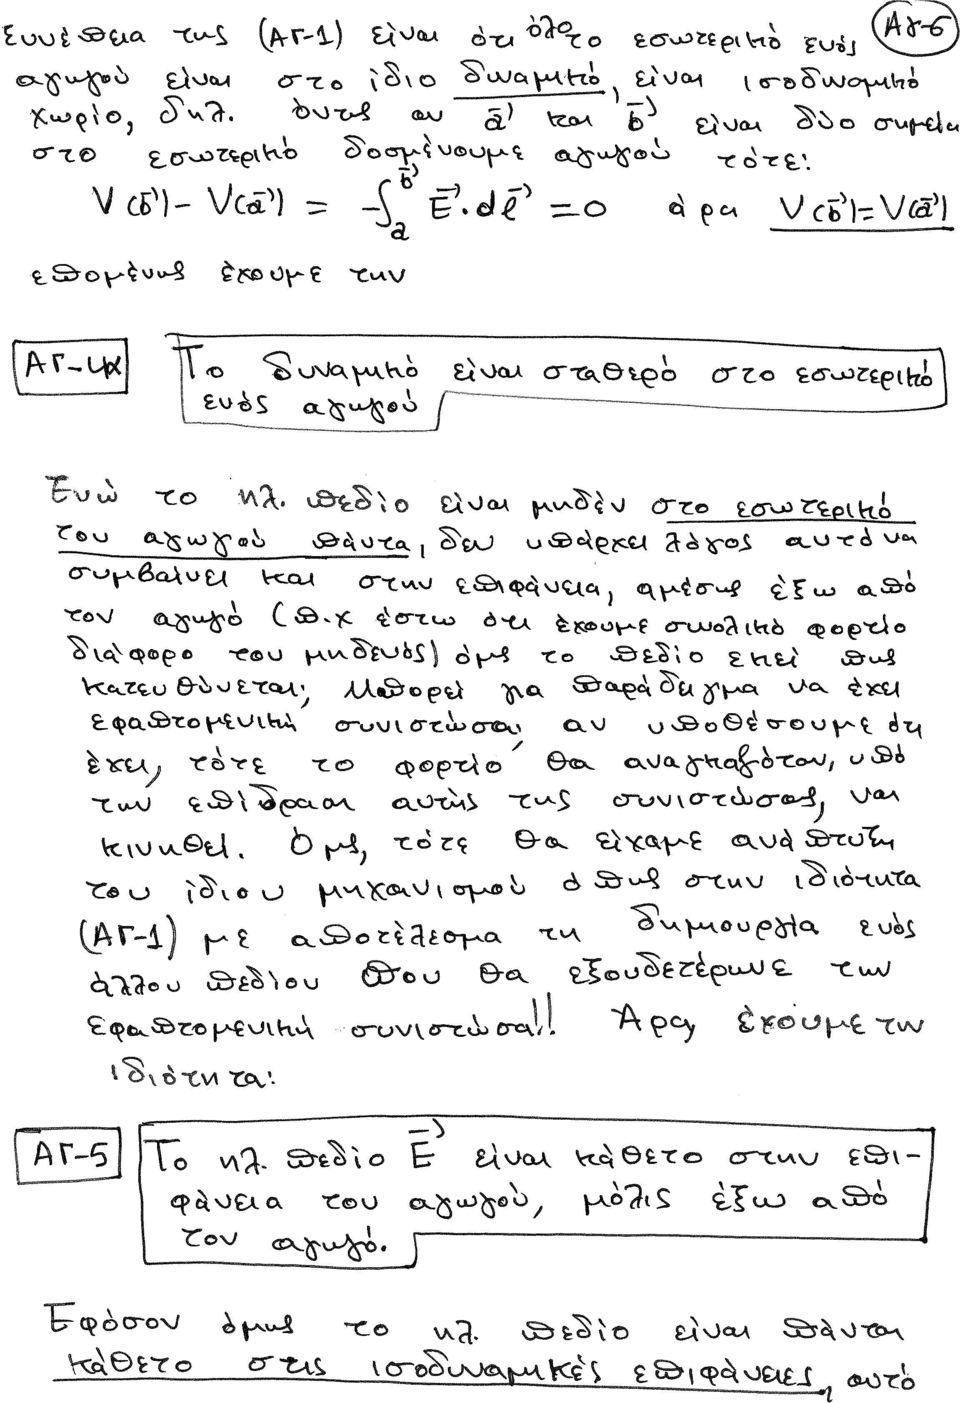 Αγ-6
Συνέπεια της (ΑΓ-1) είναι ότι όλο το εσωτερικό ενός
αγωγού είναι στο ίδιο δυναμικό, είναι ισοδυναμικό
χωρίο, δηλ. όντως αν a⃗ και b⃗ είναι δύο σημεία
στο εσωτερικό δοσμένου με αγωγού τότε:
V(b⃗) - V(a⃗) = -∫_a^b⃗ E⃗·dl⃗ = 0 άρα V(b⃗) = V(a⃗)
επομένως έχουμε την
ΑΓ-4α Το δυναμικό είναι σταθερό στο εσωτερικό
ενός αγωγού
Ενώ το ηλ. πεδίο είναι μηδέν στο εσωτερικό
του αγωγού πάντα, δεν υπάρχει λόγος αυτό να
συμβαίνει και στην επιφάνεια, αμέσως έξω από
τον αγωγό (π.χ έστω ότι έχουμε συνολικό φορτίο
διάφορο του μηδενός) όμως το πεδίο εκεί πως
κατευθύνεται; Μπορεί για παράδειγμα να έχει
εφαπτομενική συνιστώσα, αν υποθέσουμε ότι
έχει, τότε το φορτίο θα αναγκαζόταν, υπό
την επίδραση αυτής της συνιστώσας, να
κινηθεί. Όμως, τότε θα είχαμε ανάπτυξη
του ίδιου μηχανισμού όπως στην ιδιότητα
(ΑΓ-1) με αποτέλεσμα τη δημιουργία ενός
άλλου πεδίου που θα εξουδετέρωνε την
εφαπτομενική συνιστώσα!! Άρα, έχουμε τη
ιδιότητα:
ΑΓ-5 Το ηλ. πεδίο E⃗ είναι κάθετο στην επι-
φάνεια του αγωγού, μόλις έξω από
τον αγωγό.
Εφόσον όμως το ηλ. πεδίο είναι πάντα
κάθετο στις ισοδυναμικές επιφάνειες, αυτό